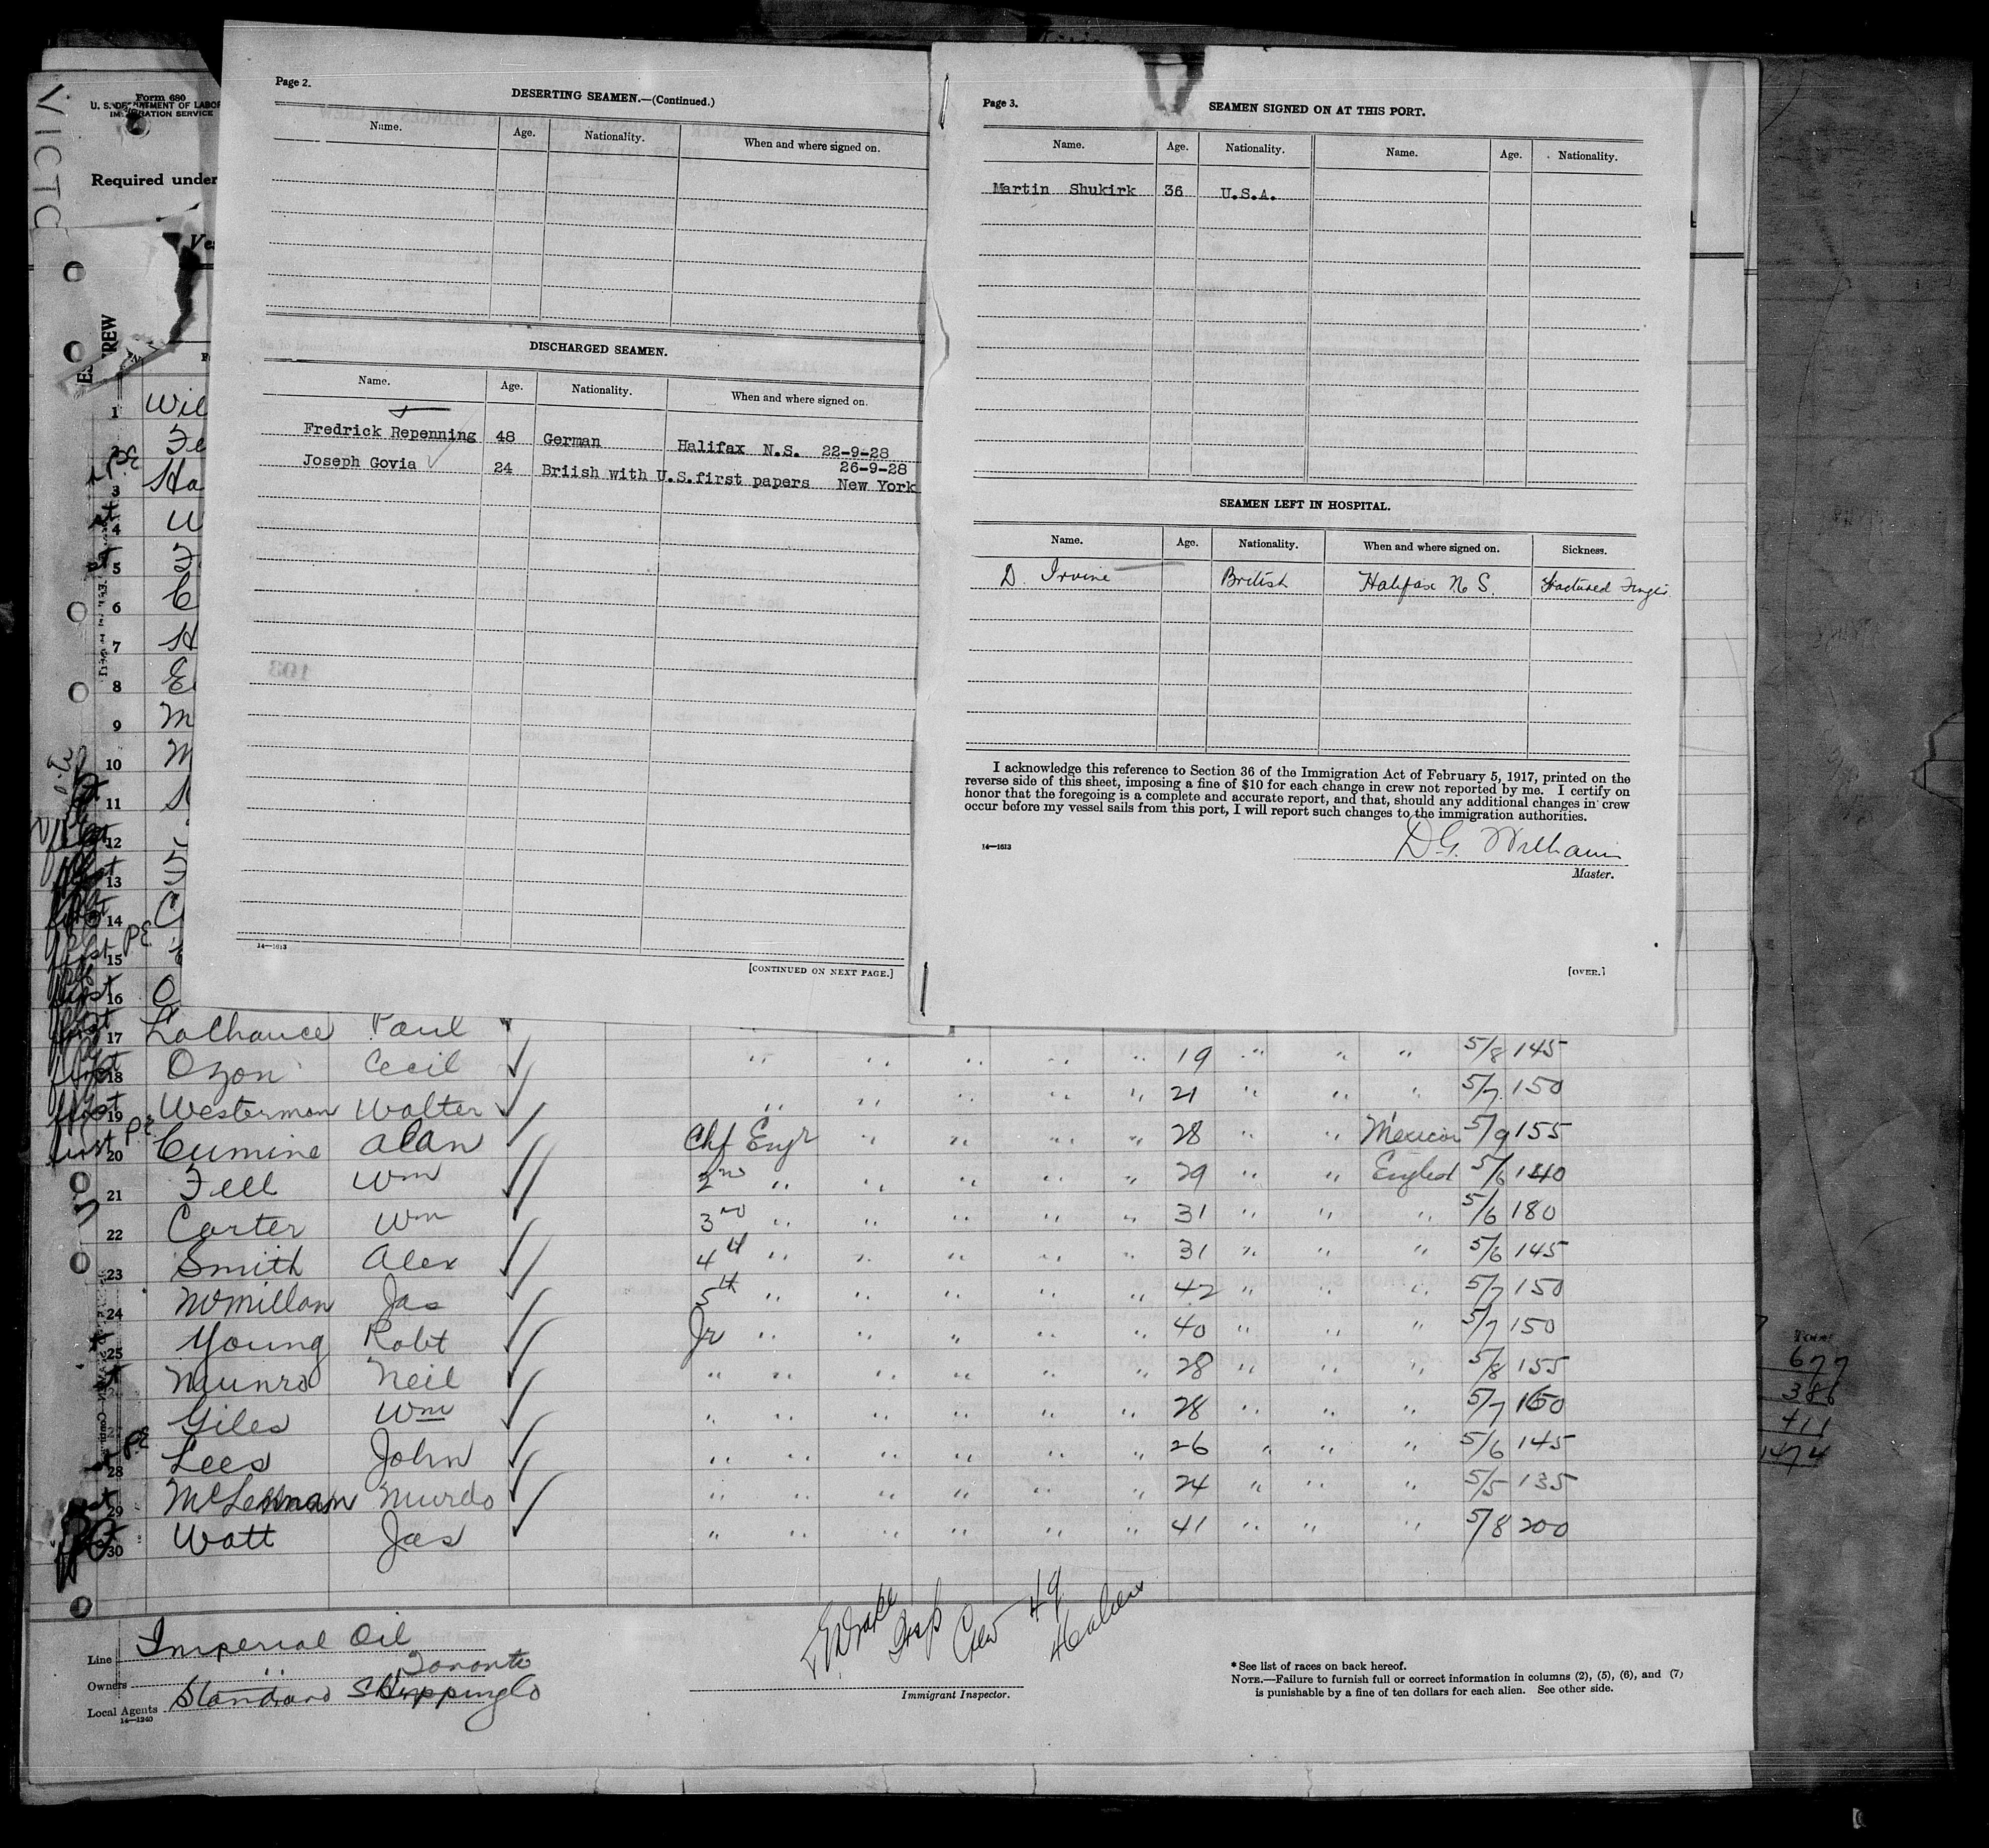 Page 2.
DESERTING SEAMEN.—(Continued.)
Name. Age. Nationality. When and where signed on.
DISCHARGED SEAMEN.
Name. Age. Nationality. When and where signed on.
Fredrick Repenning 48 German Halifax N.S. 22-9-28
Joseph Govia 24 Briish with U.S.first papers 26-9-28 New York
14—1613
[CONTINUED ON NEXT PAGE.]
Page 3.
SEAMEN SIGNED ON AT THIS PORT.
Name. Age. Nationality. Name. Age. Nationality.
Martin Shukirk 36 U.S.A.
SEAMEN LEFT IN HOSPITAL.
Name. Age. Nationality. When and where signed on. Sickness.
D. Irvine British Halifax N.S. fractured Finger
I acknowledge this reference to Section 36 of the Immigration Act of February 5, 1917, printed on the
reverse side of this sheet, imposing a fine of $10 for each change in crew not reported by me. I certify on
honor that the foregoing is a complete and accurate report, and that, should any additional changes in crew
occur before my vessel sails from this port, I will report such changes to the immigration authorities.
14—1613
Master.
[OVER.]
VICTO
Form 680
U. S. DEPARTMENT OF LABOR
IMMIGRATION SERVICE
Required under
Ves
1 Wil
2 Fe
3 Ha
4 W
5
6 C
7 H
8 E
9 M
10 M
11
12
13
14 C
15
16 O
17 LaChance Paul
18 Ozon Cecil " " " " " 19 " " " 5/8 145
19 Westerman Walter " " " " " 21 " " " 5/7 150
20 Cumine Alan Chf Engr " " " " 28 " " Mexican 5/9 155
21 Fell Wm 2nd " " " " " 29 " " English 5/6 140
22 Carter Wm 3rd " " " " " 31 " " " 5/6 180
23 Smith Alex 4th " " " " " 31 " " " 5/6 145
24 McMillan Jas 5th " " " " " 42 " " " 5/7 150
25 Young Robt Jr " " " " " 40 " " " 5/7 150
Munro Neil " " " " " " 28 " " " 5/8 155
Giles Wm " " " " " " 28 " " " 5/7 160
28 Lees John " " " " " " 26 " " " 5/6 145
29 McLennan Murdo " " " " " " 24 " " " 5/5 135
30 Watt Jas " " " " " " 41 " " " 5/8 200
677
386
411
1474
Line Imperial Oil
Owners " Toronto
Local Agents Standard Shipping Co
14—1240
Crew 49
Immigrant Inspector.
* See list of races on back hereof.
NOTE.—Failure to furnish full or correct information in columns (2), (5), (6), and (7)
is punishable by a fine of ten dollars for each alien. See other side.